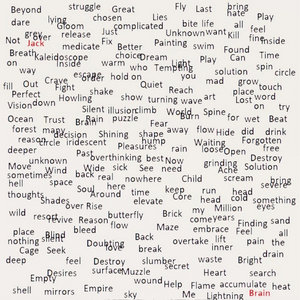 Beyond struggle Great Fly Last bring
dare lying chosen Lies bite life hate Play
Gloom complicated all feel
grew over release Just Unknown want Kill fine
Not Jack medicate Fix Painting swim Found inside
Breath Kaleidoscope Better Dream Play Can Time
on inside choice warm Who Light
way escape order hold on Tempting solution spin circle
fill Out Crave you mad grow
Perfect Fight shake Quiet Reach place touch
Howling show turning wave art word
Vision down Silent illusion climb World Spins Lost on try
Ocean Trust Rain puzzle Burn for wet Beat
forest many Brain Fear away flow Hide did drink
reason decision Shining shape hump Waiting Forgotten
deeper circle iridescent Pleasures rain loose Open free
unknown Past overthinking best Now grinding Destroy
Move Wind Wide sick See need Ache Solution
sometimes back real nowhere Child scream bring
hell space Soul Around time keep run head severing
thoughts Shades over Rise elevate Core head cold something
wild resort revive Reason butterfly Brick my Million eyes
place Blind flow Maze come years Finding sand
nothing bleed Back embrace Feel all
silent Cage Seek Doubting love break overtake lift pain the
deep feel Destroy slumber waste Bright drain
Desires surface Muzzle secret Heart search
Empty wound Help Flame accumulate heat
shell mirrors Empire sky Me Lightning Brain